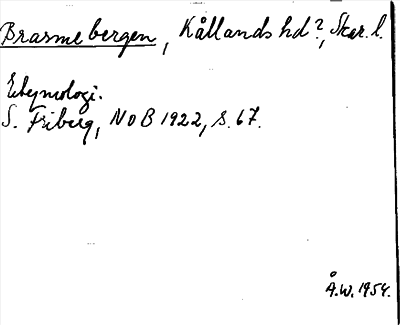 Brasmebergen, Kållands hd?, Skar. l.
Etymologi.
S. Friberg, NoB 1922, s. 67.
Å.W. 1954.